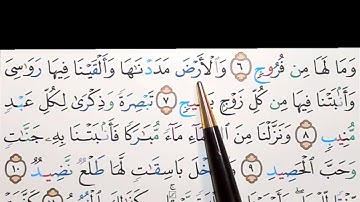 وَمَا لَهَا مِن فُرُوجٍ ٦ وَالْأَرْضَ مَدَدْنَـٰهَا وَأَلْقَيْنَا فِيهَا رَوَٰسِىَ
وَأَنۢبَتْنَا فِيهَا مِن كُلِّ زَوْجٍۭ بَهِيجٍ ٧ تَبْصِرَةً وَذِكْرَىٰ لِكُلِّ عَبْدٍ
مُّنِيبٍ ٨ وَنَزَّلْنَا مِنَ السَّمَآءِ مَآءً مُّبَـٰرَكًا فَأَنۢبَتْنَا بِهِۦ جَنَّـٰتٍ
وَحَبَّ الْحَصِيدِ ٩ وَالنَّخْلَ بَاسِقَـٰتٍ لَّهَا طَلْعٌ نَّضِيدٌ ١٠